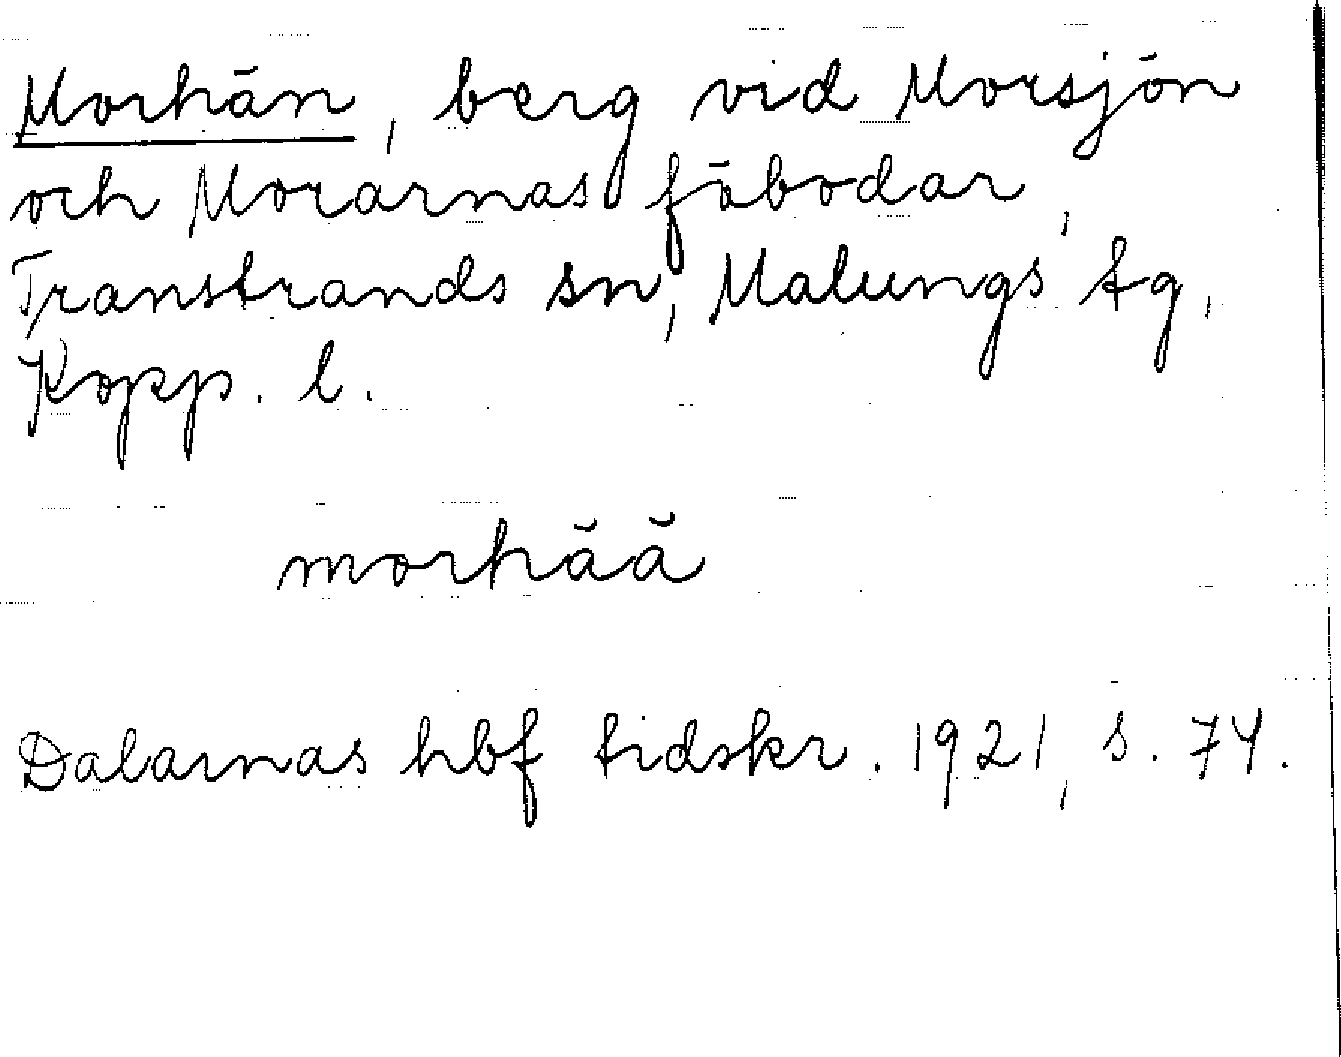 Morhän, berg vid Morsjön
och Morarnas fäbodar,
Transtrands sn, Malungs tg,
Kopp. l.
morhää
Dalarnas hbf tidskr. 1921, s. 74.